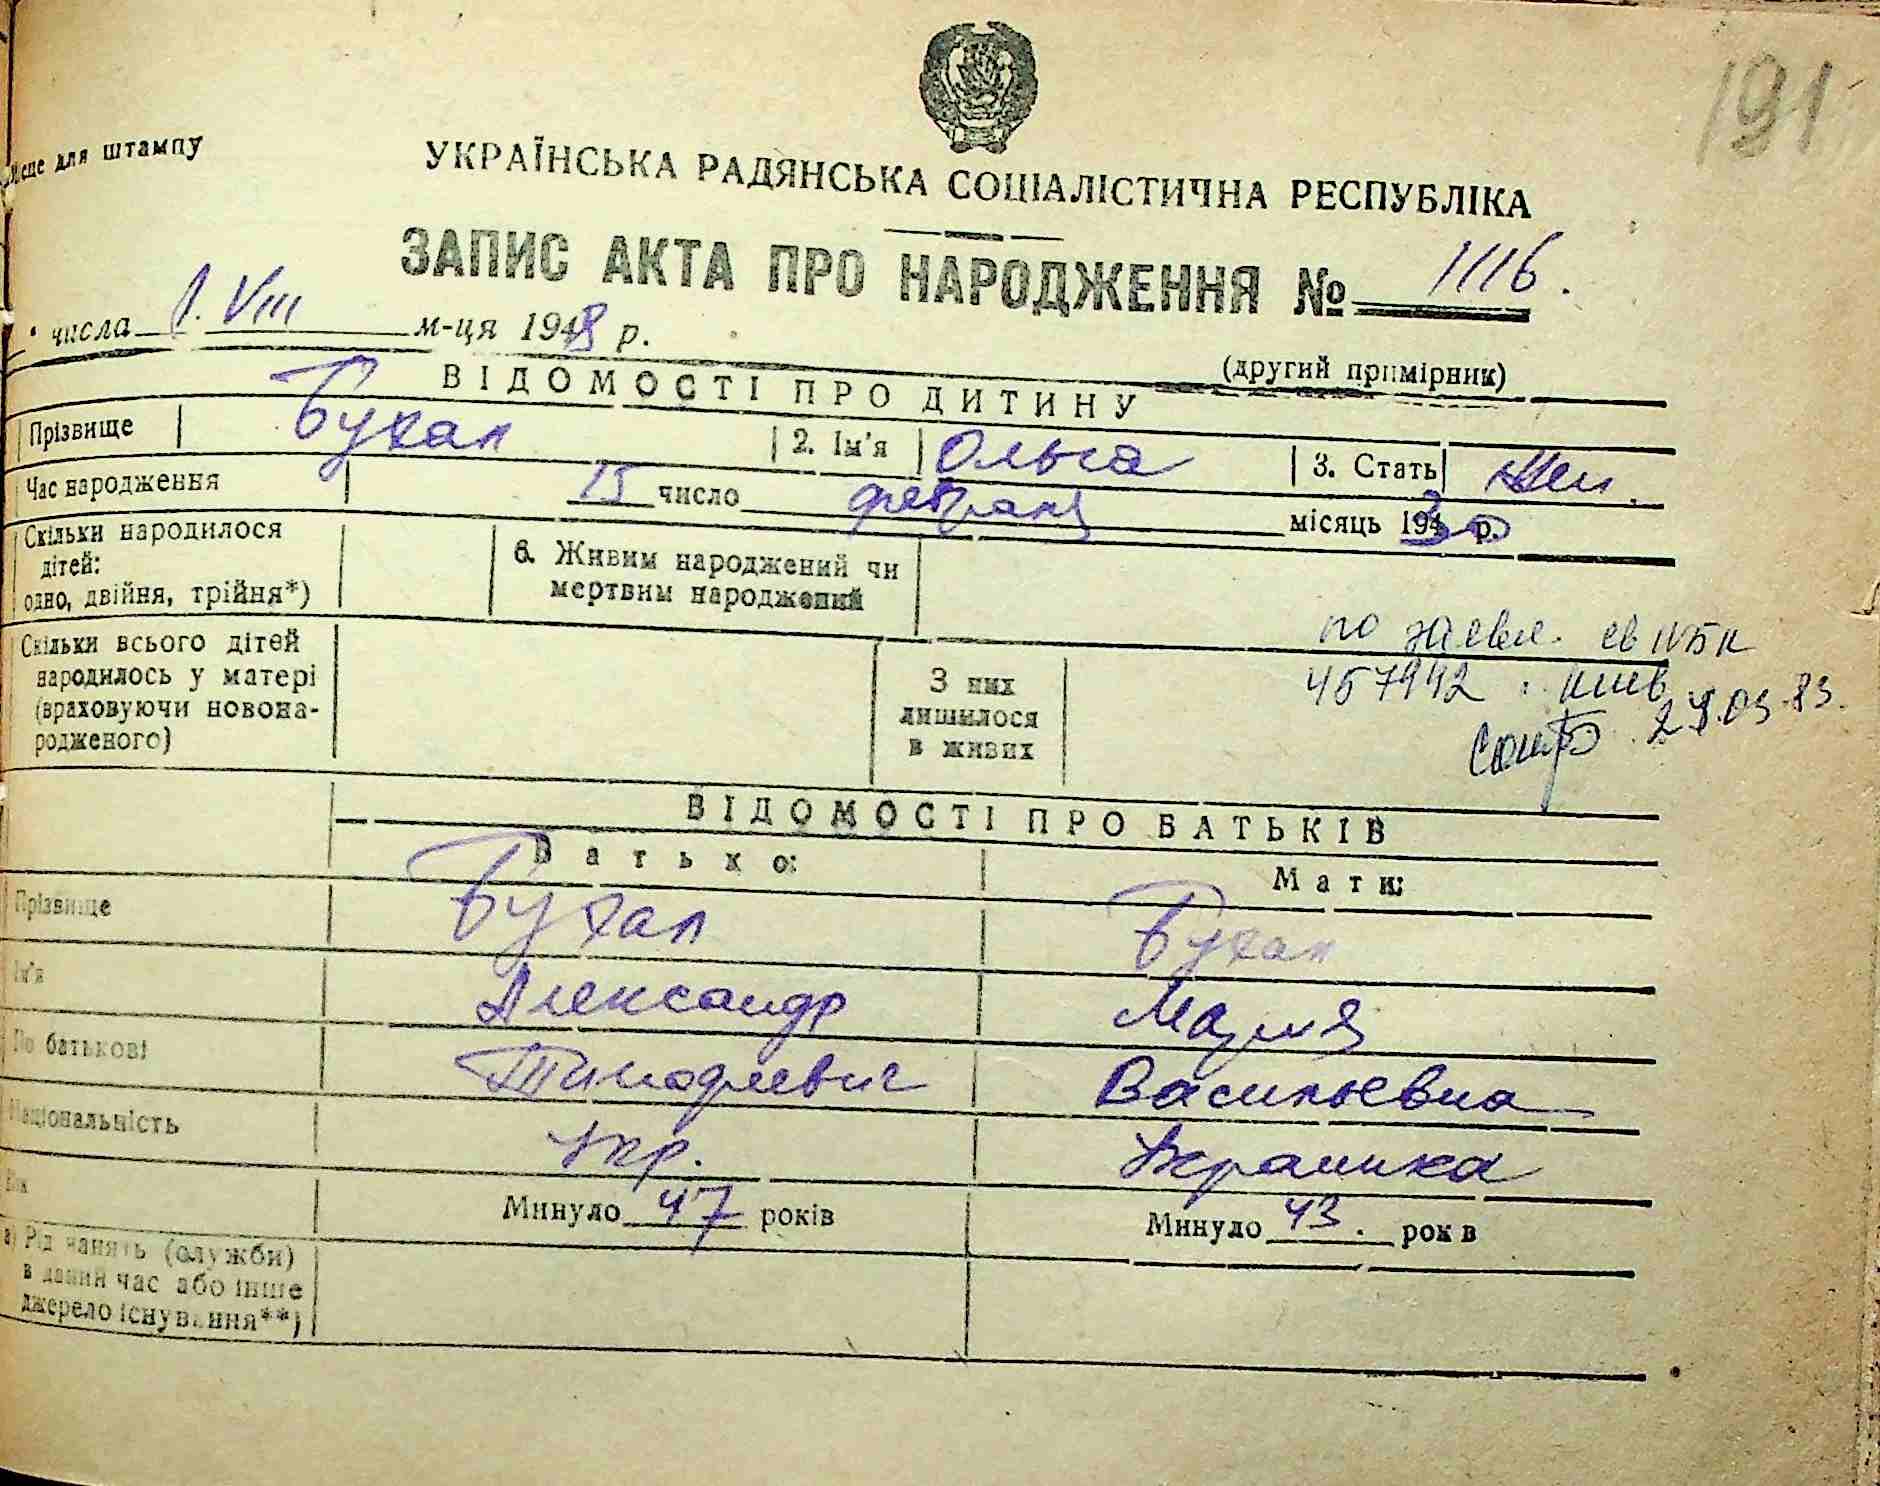 191
для штампу
УКРАЇНСЬКА РАДЯНСЬКА СОЦІАЛІСТИЧНА РЕСПУБЛІКА
ЗАПИС АКТА ПРО НАРОДЖЕННЯ № 1116.
числа 1. VIII м-ця 1948 р.
(другий примірник)
ВІДОМОСТІ ПРО ДИТИНУ
Прізвище Бухал 2. Ім'я Ольга 3. Стать жен.
Час народження 15 число февраля місяць 1930 р.
Скільки народилося
дітей:
одно, двійня, трійня*)
6. Живим народжений чи
мертвим народжений
Скільки всього дітей
народилось у матері
(враховуючи новона-
родженого)
З них
лишилося
в живих
по заявл.
457942
29.03.83.
ВІДОМОСТІ ПРО БАТЬКІВ
Батько: Мати:
Прізвище Бухал Бухал
Ім'я Александр Мария
По батькові Тимофеевич Васильевна
Національність Укр. Украинка
Вік Минуло 47 років Минуло 43. рок в
а) Рід занять (служби)
в даний час або інше
джерело існування**)